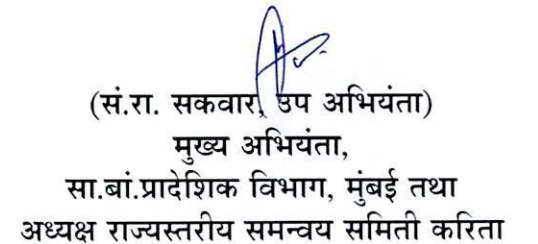 (सं.रा. सकवार, उप अभियंता)
मुख्य अभियंता,
सा.बां.प्रादेशिक विभाग, मुंबई तथा
अध्यक्ष राज्यस्तरीय समन्वय समिती करिता